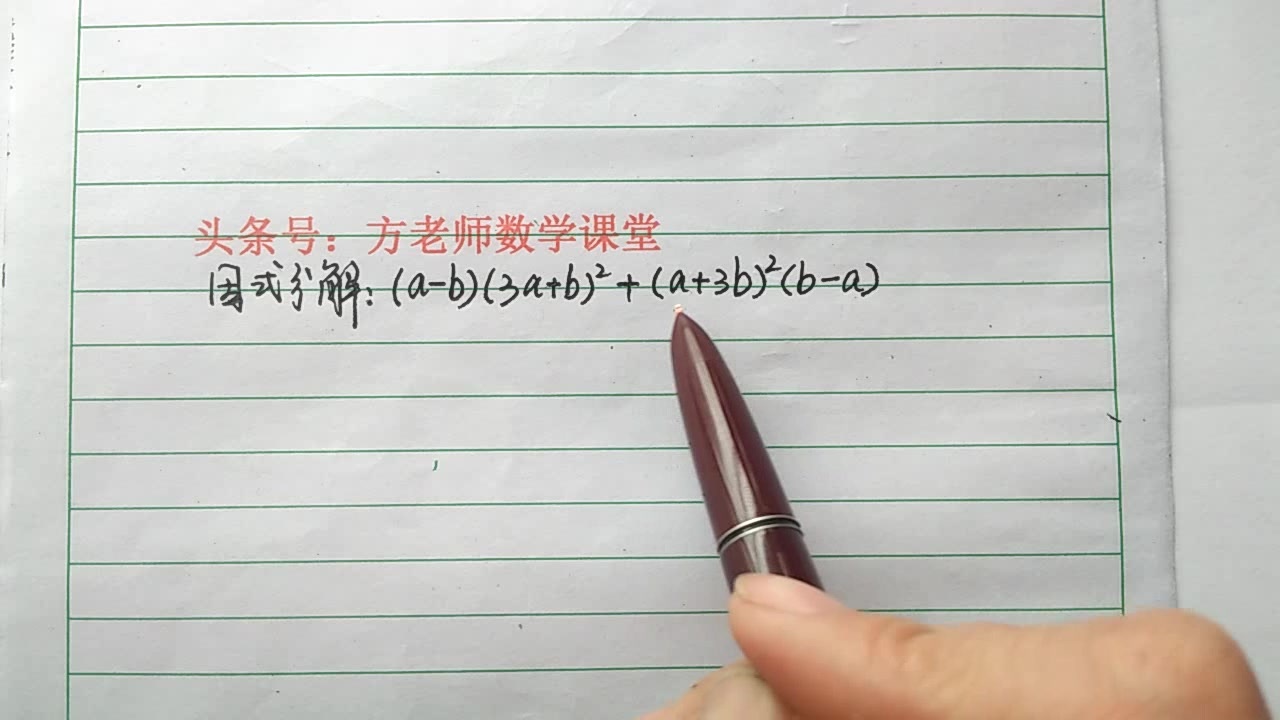 头条号：方老师数学课堂
因式分解：(a-b)(3a+b)²+(a+3b)²(b-a)